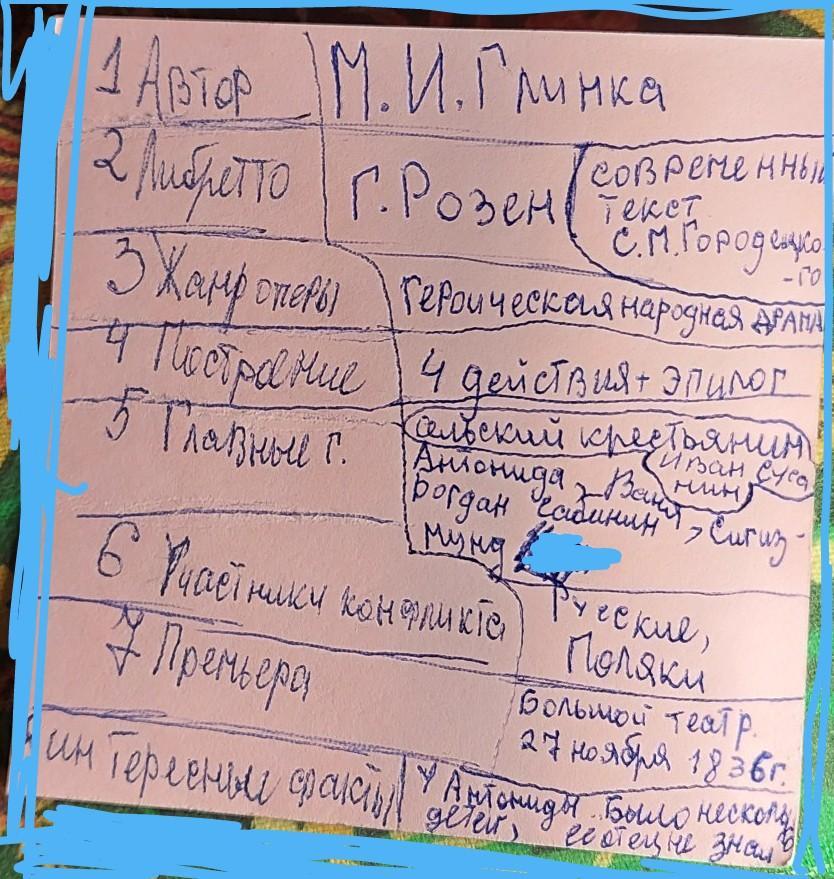 1 Автор М.И.Глинка
2 Либретто Г.Розен современный
текст
С.М.Городецко-
-го
3 Жанр оперы Героическая народная драма
4 Построение 4 действия+эпилог
5 Главные г. сельский крестьянин
Иван Суса
нин
Антонида, Ваня,
Богдан Сабинин, Сигиз-
мунд
6 Участники конфликта Русские,
Поляки
7 Премьера Большой театр.
27 ноября 1836г.
интересные факты У Антониды было несколько
детей, её отец не знал